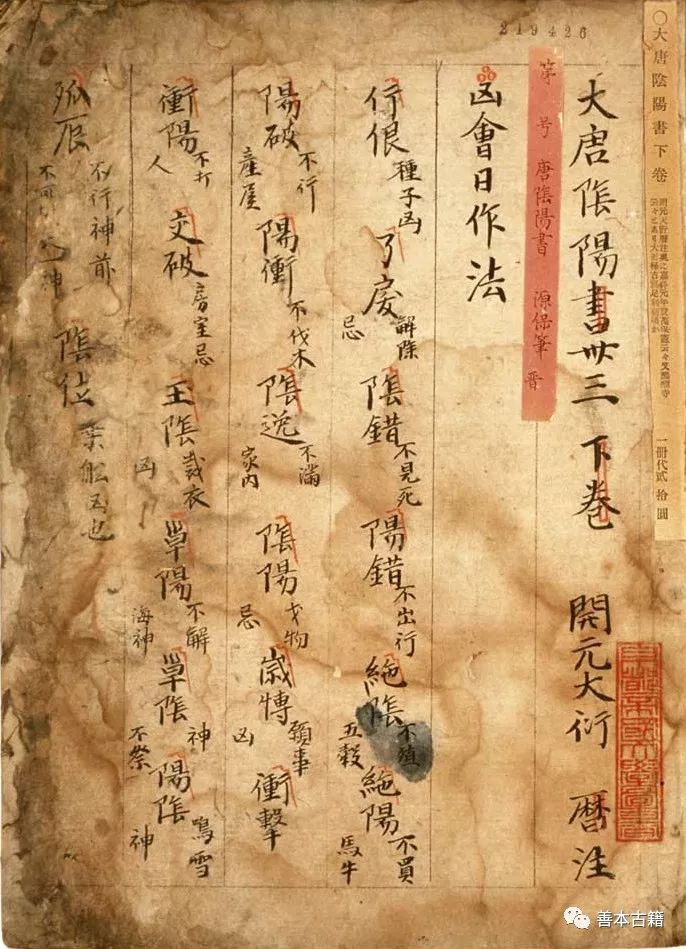 219426
○大唐陰陽書下卷
一冊代貳拾圓
大唐陰陽書卅三 下卷 開元大衍 曆注
号 唐陰陽書 源保筆
凶會日作法
行佷 種子凶 了戾 解除忌 陰錯 不見死 陽錯 不出行 絶陰 不殖五穀 絶陽 不買馬牛
陽破 不行產屋 陽衝 不伐木 陰逆 不滿家內 陰陽 忌 歳愽 凶 衝擊
衝陽 不打人 交破 房室忌 王陰 裁衣凶 草陽 不解海神 草陰 神不祭 陽陰 神
孤辰 不行神前 陰位 乗舩凶也
善本古籍